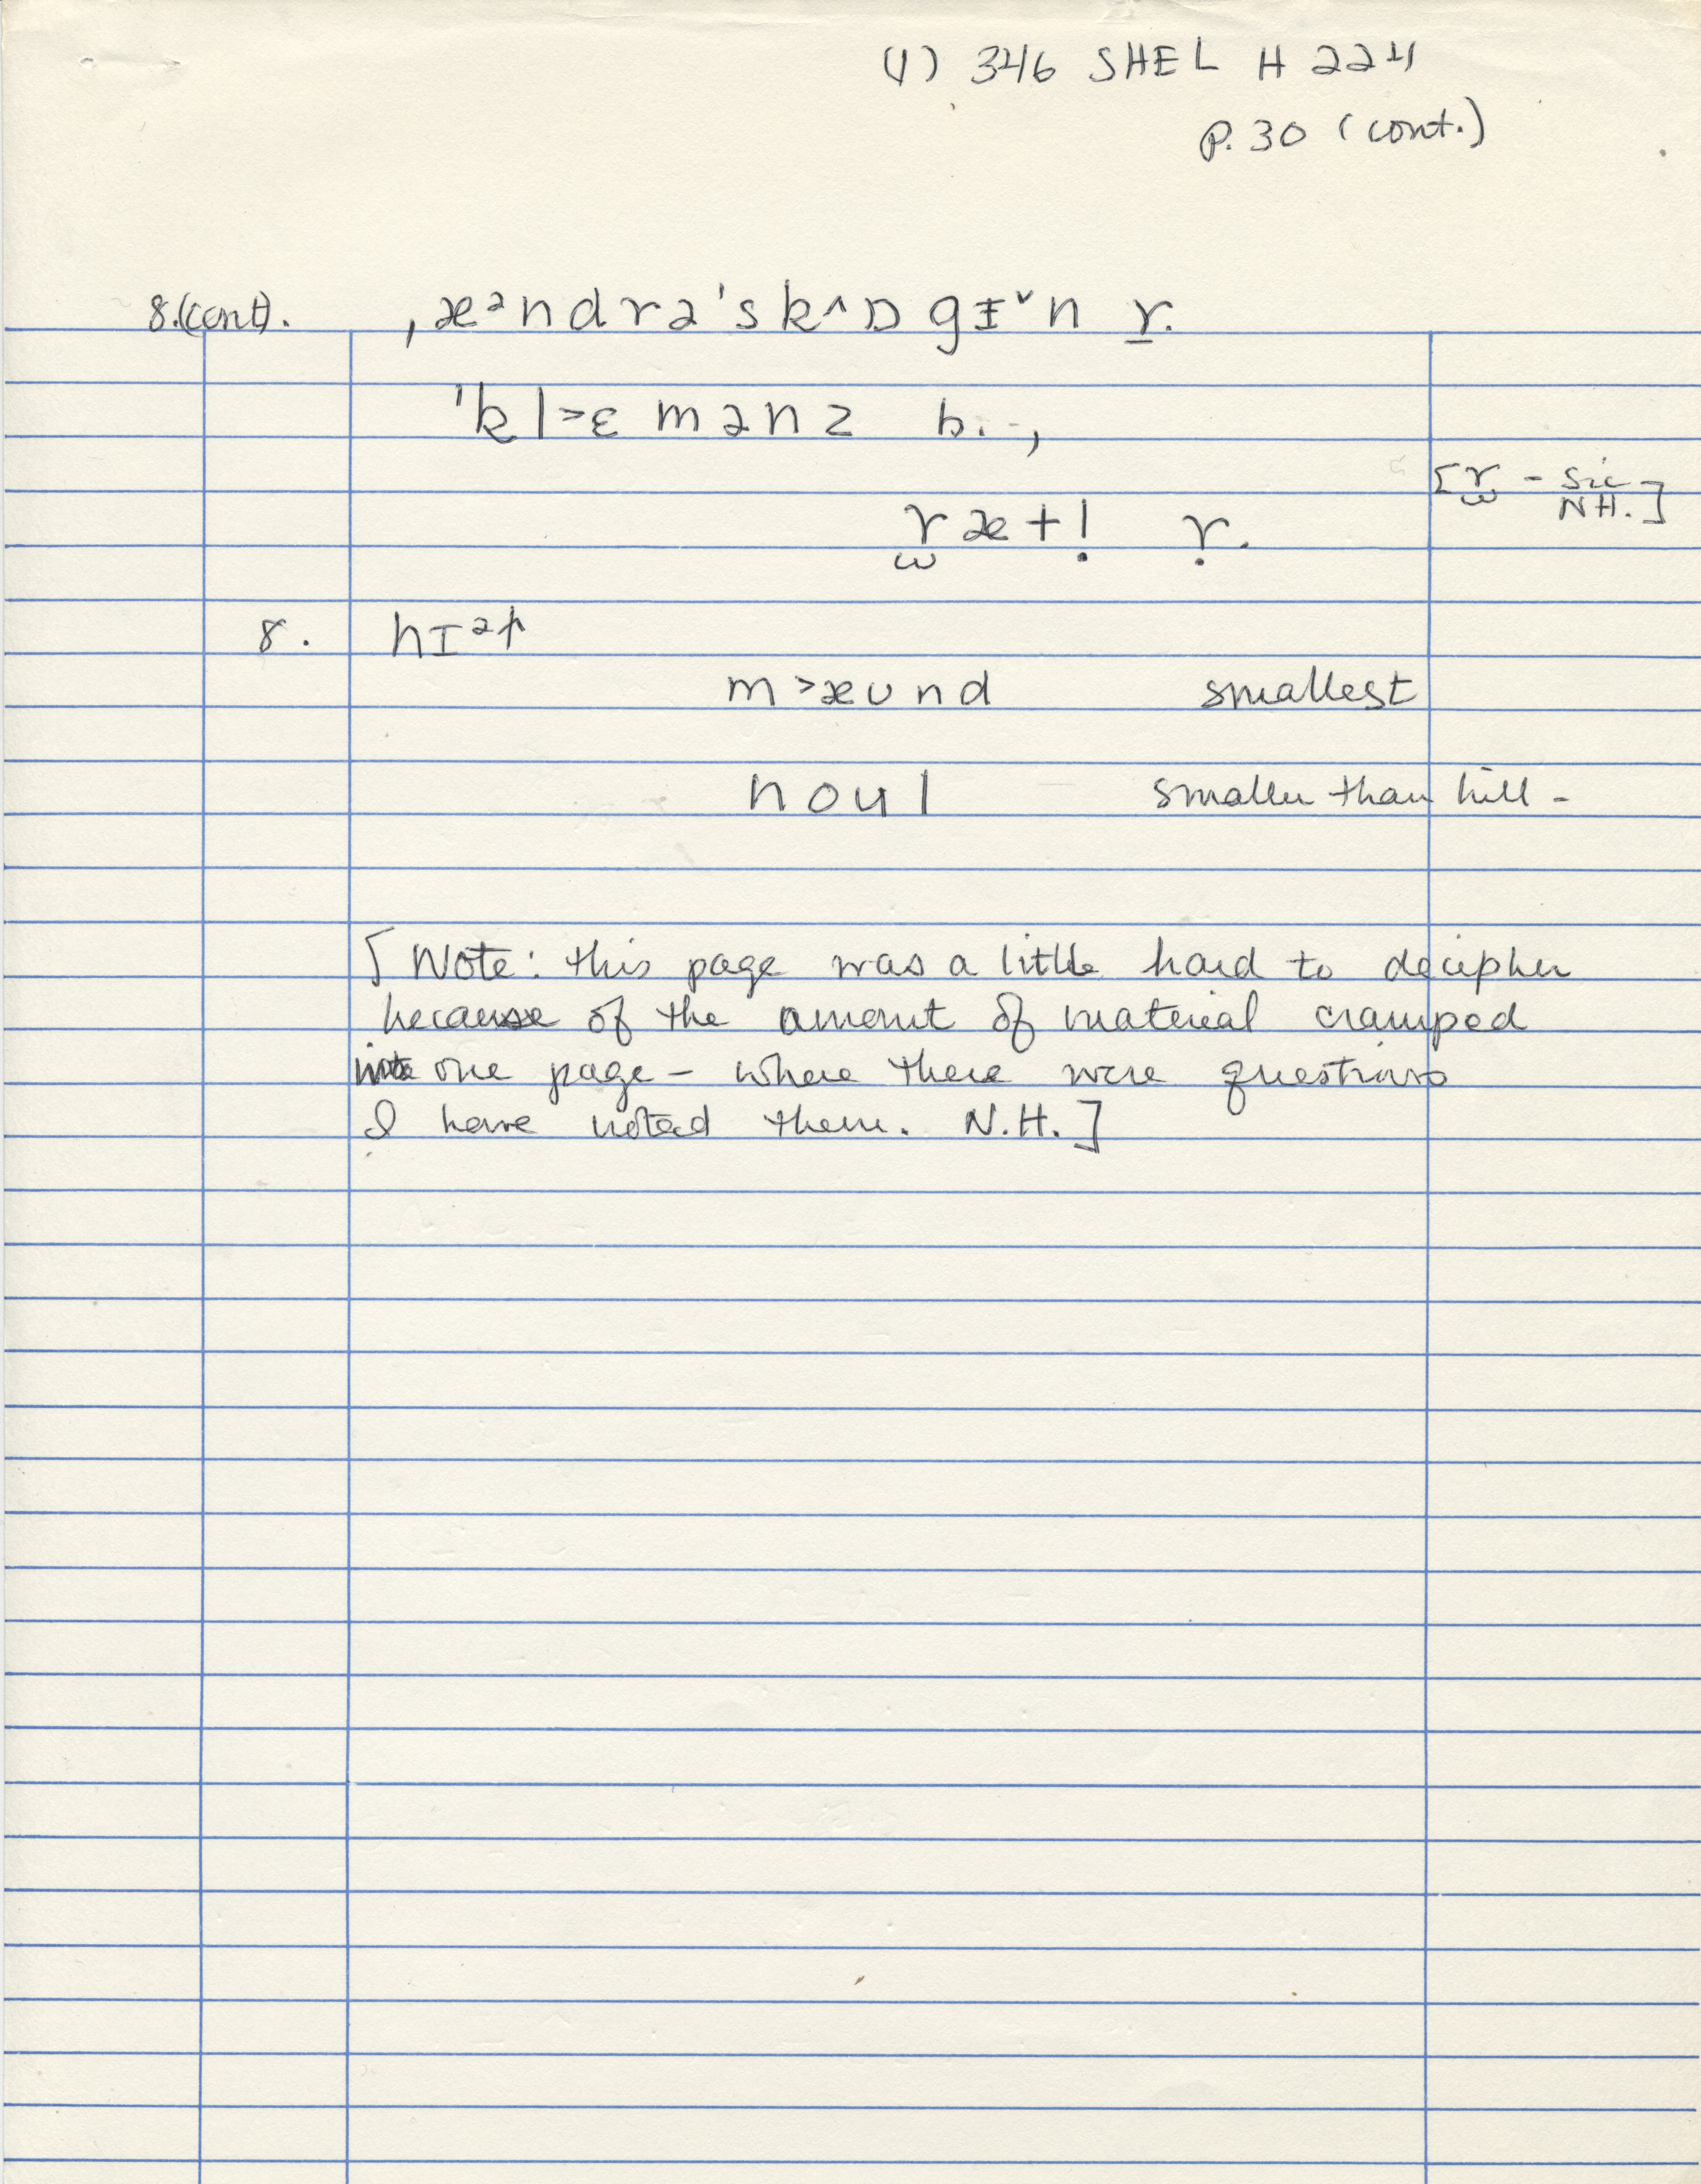 (1) 346 SHEL H 224
P. 30 (cont.)
8.(cont). ˌæᵊndrə'sk^ɒgɪˇn r̲.
'kl>ɛmənz b. -,
[r̫ - sic N.H.]
r̫æt!̣ ṛ.
8. hɪᵊp
m>æʊnd smallest
noul smaller than hill -
[Note: this page was a little hard to decipher
because of the amount of material cramped
into one page - where there were questions
I have noted them. N.H.]